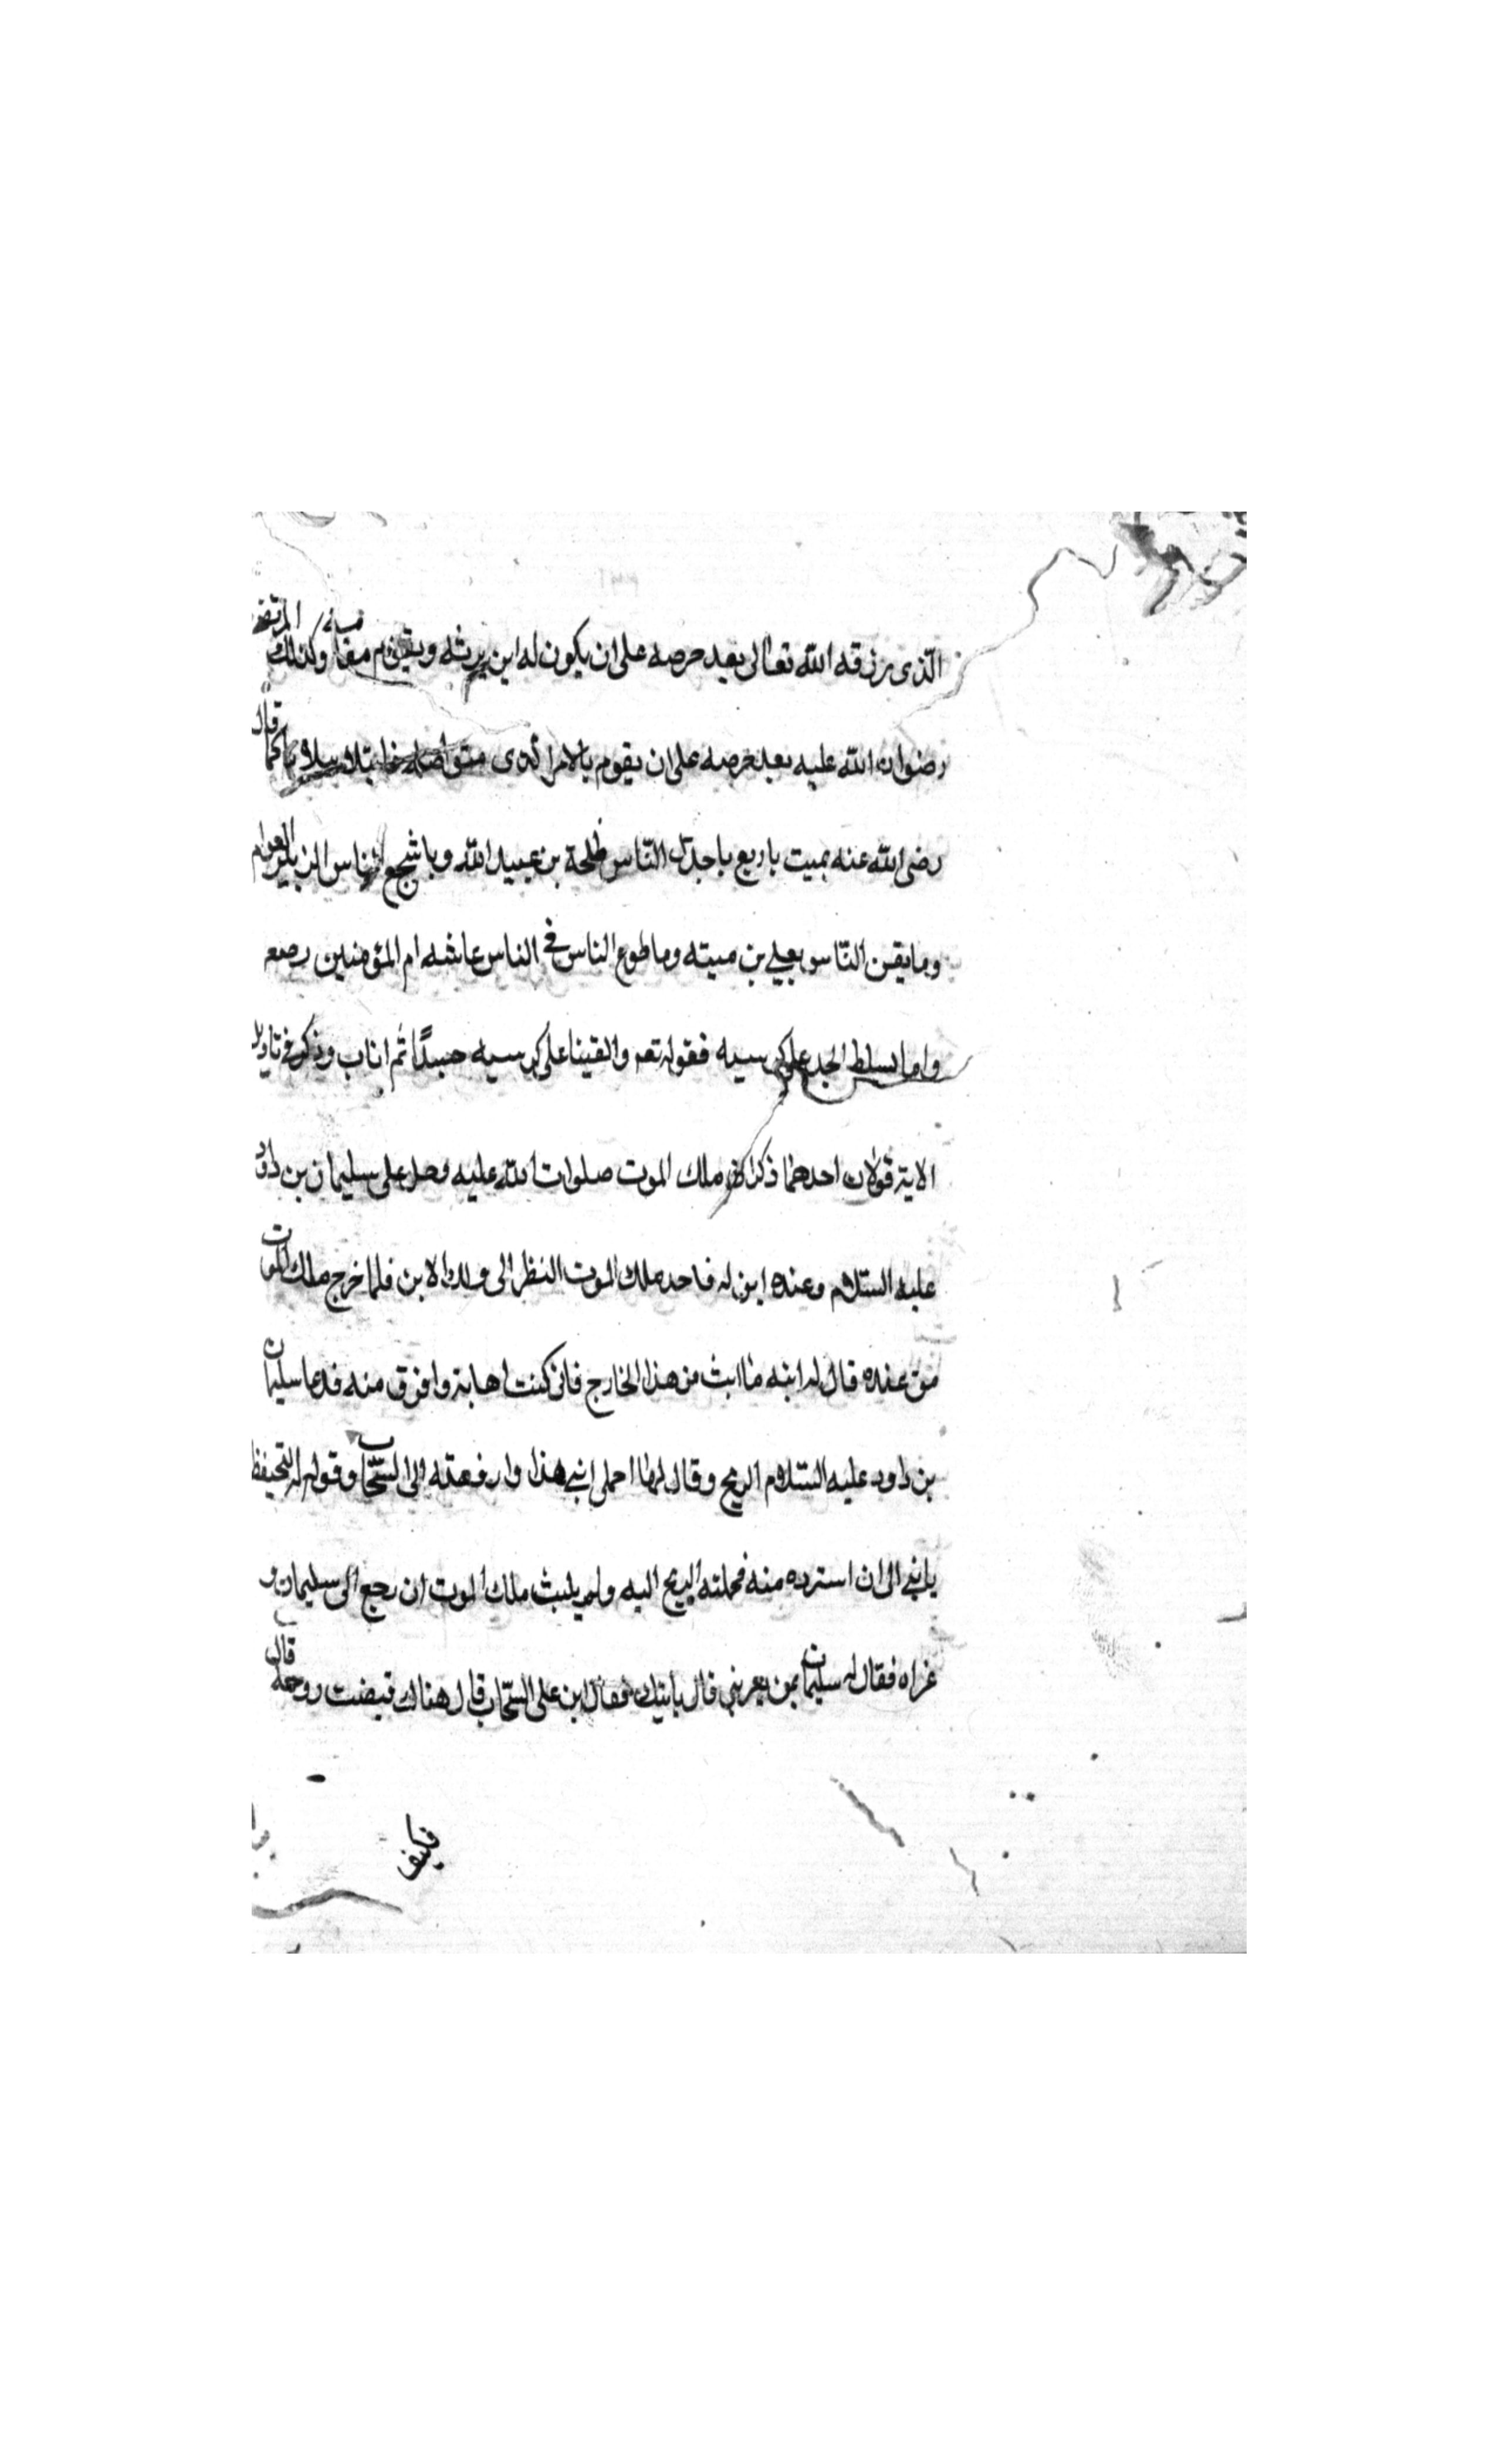 الذى رزقه الله تعالى بعد حرصه على ان يكون له ابن يرثه ويقوم مقامه وكذلك المرتضى
رضوان الله عليه بعد حرصه على ان يقوم بالامر الذى هو اصله فابتلاه بلاء كما قال
رضى الله عنه بميت باربع باجدل الناس طلحة بن عبيد الله وباشجع الناس الزبير العوام
وما يقن الناس يعلي بن ميته وما طوع الناس فى الناس عايشه ام المؤمنين رضعه
واما تسلط الجد على كرسيه فقوله تعه والقينا على كرسيه جسدًا ثم اناب وذكر فى تاويل
الاية قولان احدهما ذكرا ان ملك الموت صلوات الله عليه دخل على سليمان بن داود
عليه السلام وعنده ابن له فاحد ملك الموت النظر الى ولد الابن فلما خرج ملك الموت
من عنده قال له ابنه من هذا الخارج فانى كنت اهابة وافرق منه فدعا سليمان
بن داود عليه السلام الريح وقال لها احملى ابنى هذا وارفعته الى السحاب وقوله له التحيفظ
يابنى الى ان استرده منه فحملته الريح اليه ولم يلبث ملك الموت ان رجع الى سليمان و
عزاه فقال له سليمان بمن تعزينى قال بابنك فقال ابن على السحاب قال هناك قبضت روحه
فكيف